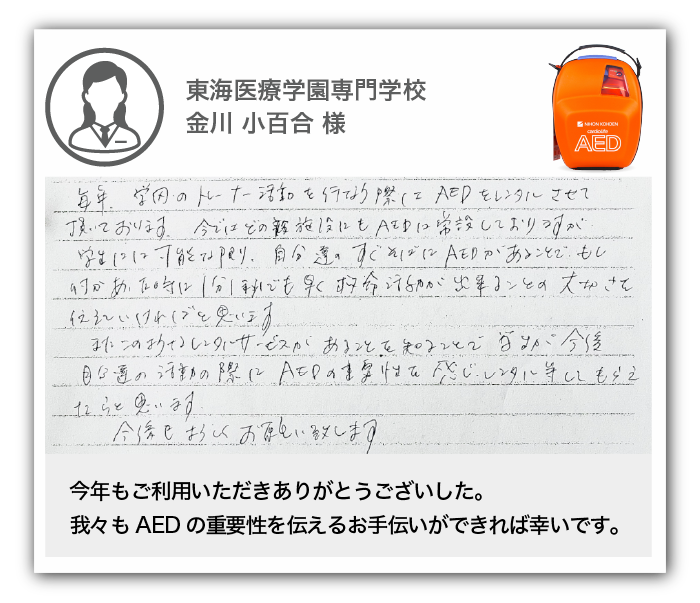 東海医療学園専門学校
金川 小百合 様
NIHON KOHDEN
cardiolife
AED
毎年、学内のトレーナー活動を行なう際にAEDをレンタルさせて
頂いております。今ではどの施設にもAEDは常設しておりますが
学生には可能な限り、自分達のすぐそばにAEDがあることで、もし
何かあった時に1分1秒でも早く救命活動が出来ることの大切さを
伝えていければと思います
またこの様なレンタルサービスがあることを知ることで 学生が今後
自分達の活動の際にAEDの重要性を感じレンタルをしてもらえ
たらと思います。
今後もよろしくお願い致します
今年もご利用いただきありがとうございした。
我々もAEDの重要性を伝えるお手伝いができれば幸いです。